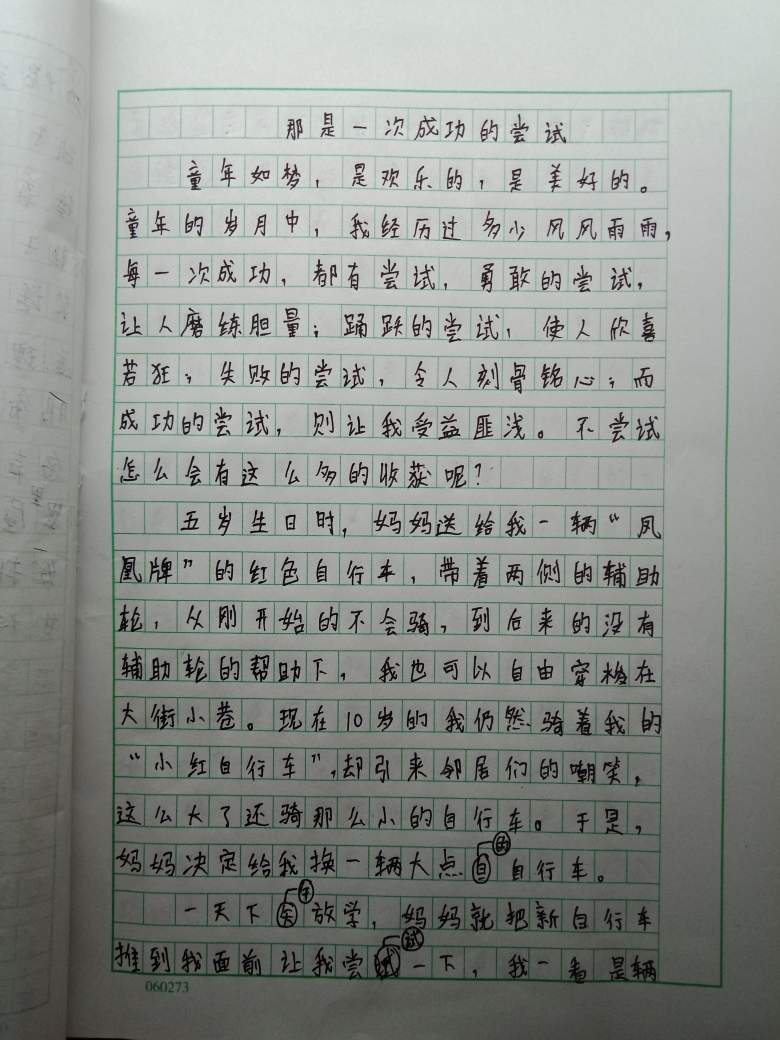 那是一次成功的尝试
童年如梦，是欢乐的，是美好的。
童年的岁月中，我经历过多少风风雨雨，
每一次成功，都有尝试，勇敢的尝试，
让人磨练胆量；踊跃的尝试，使人欣喜
若狂；失败的尝试，令人刻骨铭心；而
成功的尝试，则让我受益匪浅。不尝试
怎么会有这么多的收获呢？
五岁生日时，妈妈送给我一辆“凤
凰牌”的红色自行车，带着两侧的辅助
轮，从刚开始的不会骑，到后来的没有
辅助轮的帮助下，我也可以自由穿梭在
大街小巷。现在10岁的我仍然骑着我的
“小红自行车”，却引来邻居们的嘲笑，
这么大了还骑那么小的自行车。于是，
妈妈决定给我换一辆大点的自行车。
一天下午放学，妈妈就把新自行车
推到我面前让我尝试一下，我一看是辆
060273